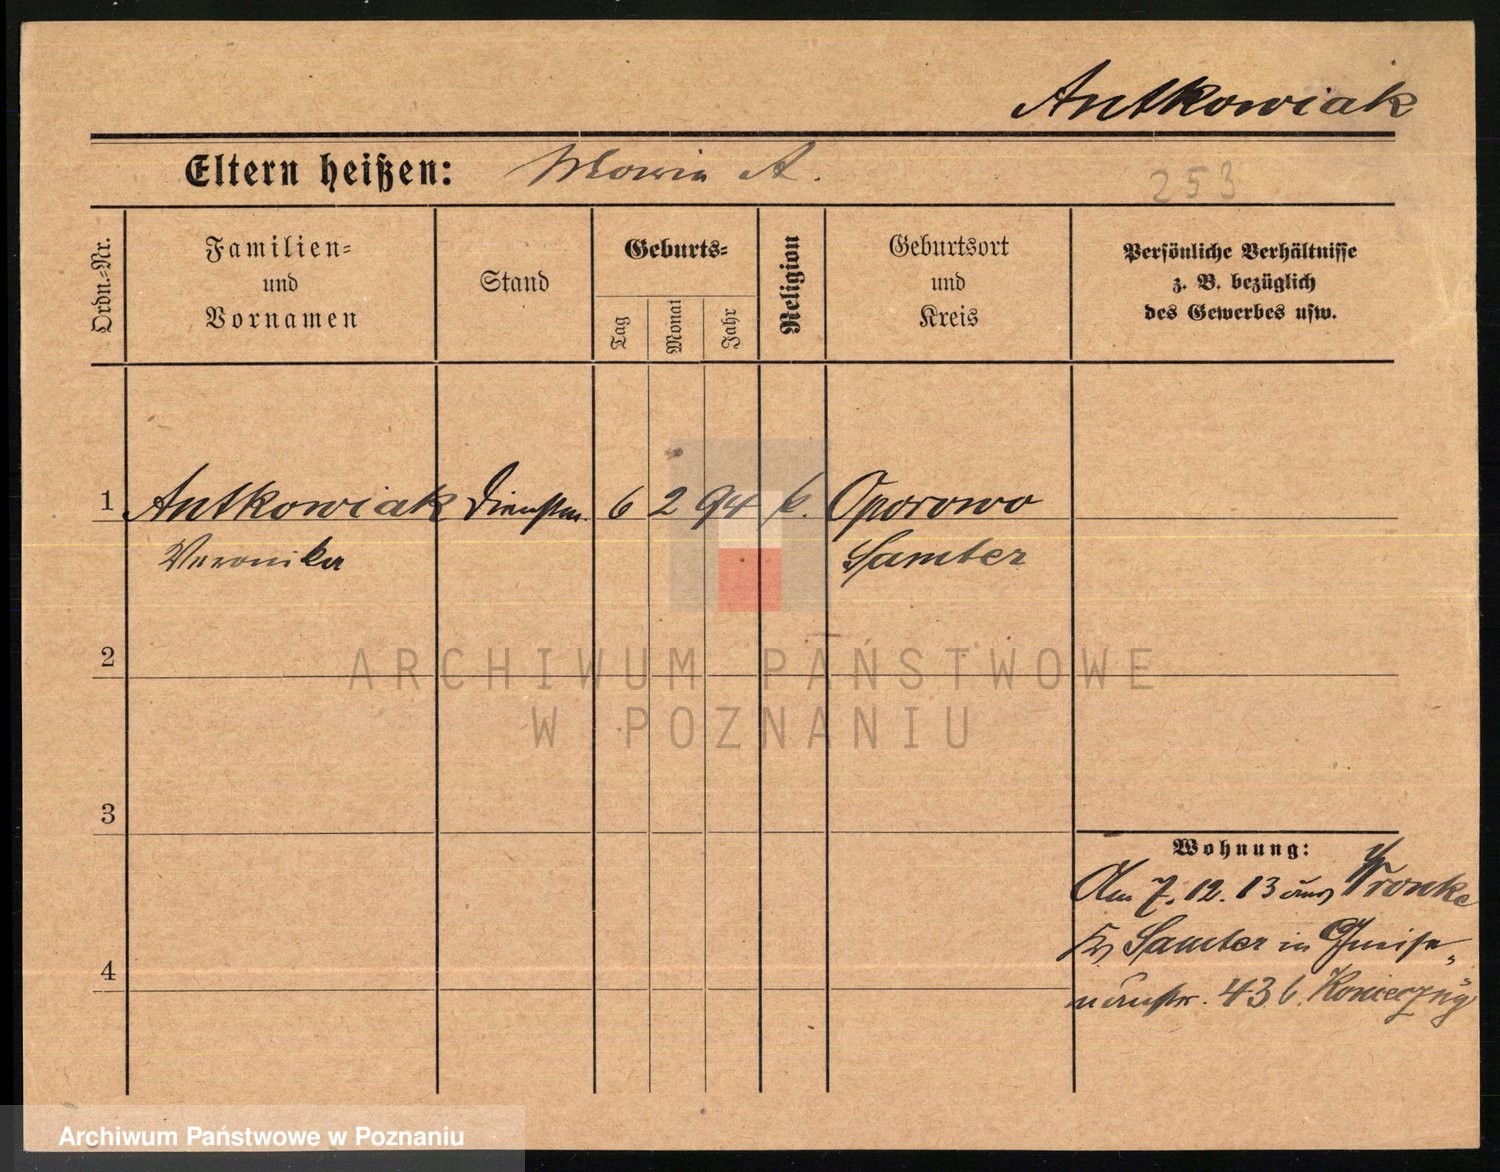 Antkowiak
Eltern heißen: Maria A.
253
Ordn.-Nr.
Familien-
und
Vornamen
Stand
Geburts-
Tag
Monat
Jahr
Religion
Geburtsort
und
Kreis
Persönliche Verhältnisse
z. B. bezüglich
des Gewerbes usw.
1 Antkowiak Dienstm. 6 2 94 k. Oporowo
Veronika Samter
2
3
4
Wohnung:
Am 7. 12. 13 aus Wronke
Kr. Samter in Gneise-
naustr. 43 b. Konieczny
ARCHIWUM PAŃSTWOWE
W POZNANIU
Archiwum Państwowe w Poznaniu